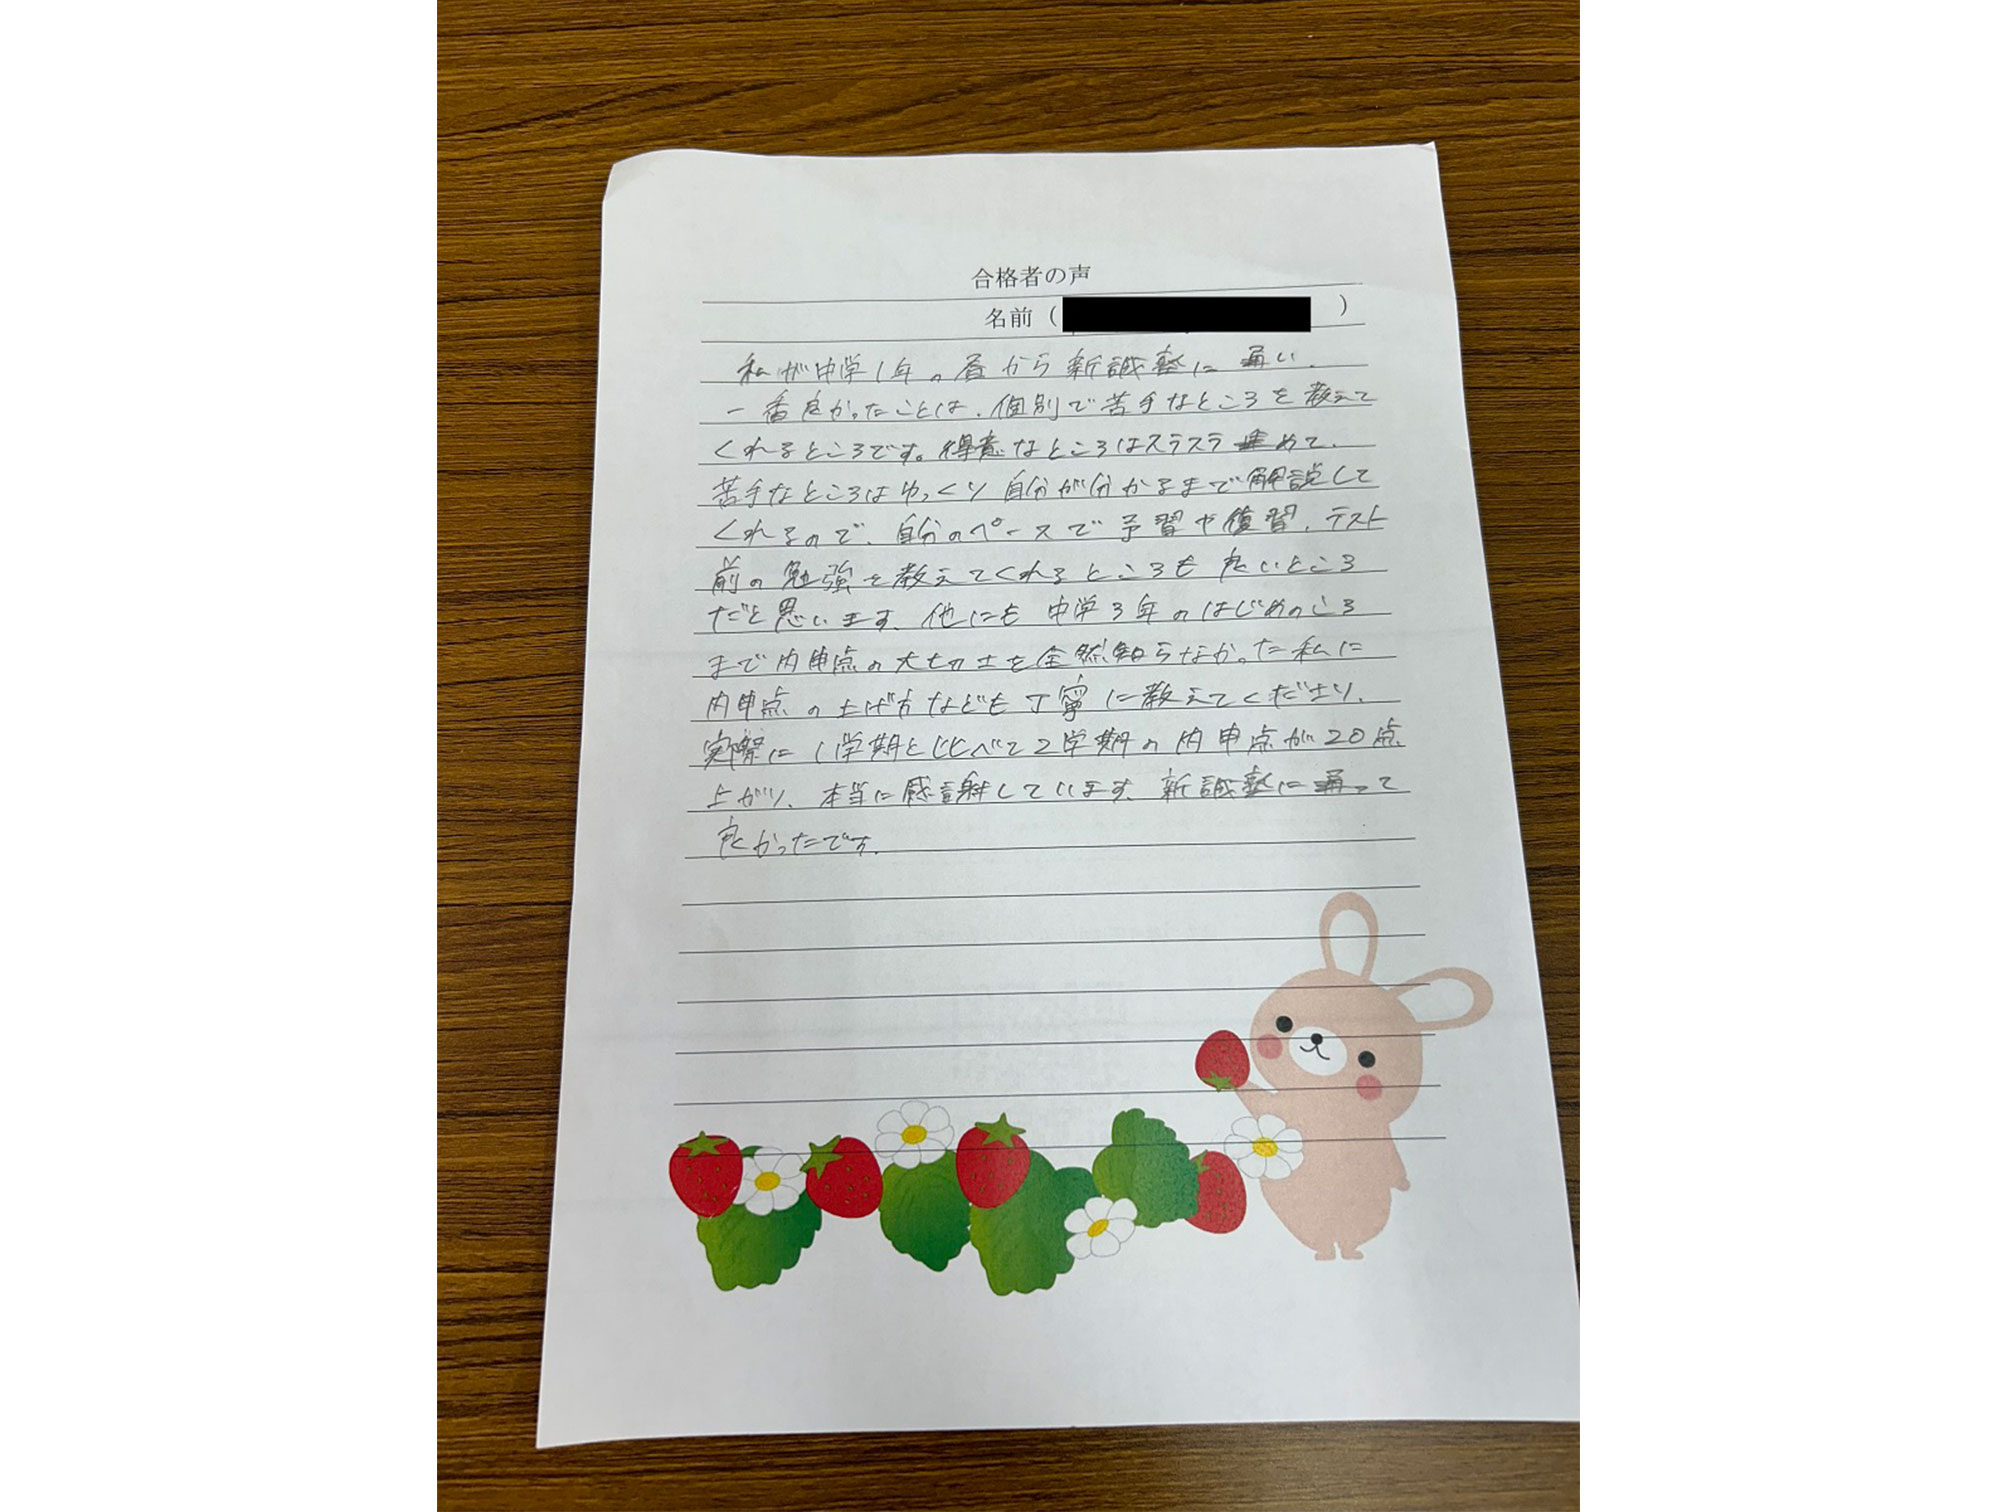 合格者の声
名前（　　　）
私が中学1年の春から新誠塾に通い、
一番良かったことは、個別で苦手なところを教えて
くれるところです。得意なところはスラスラ進めて、
苦手なところはゆっくり自分が分かるまで解説して
くれるので、自分のペースで予習や復習、テスト
前の勉強を教えてくれるところも良いところ
だと思います。他にも中学3年のはじめのころ
まで内申点の大切さを全然知らなかった私に
内申点の上げ方なども丁寧に教えてくださり、
実際に1学期と比べて2学期の内申点が20点
上がり、本当に感謝しています。新誠塾に通って
良かったです。